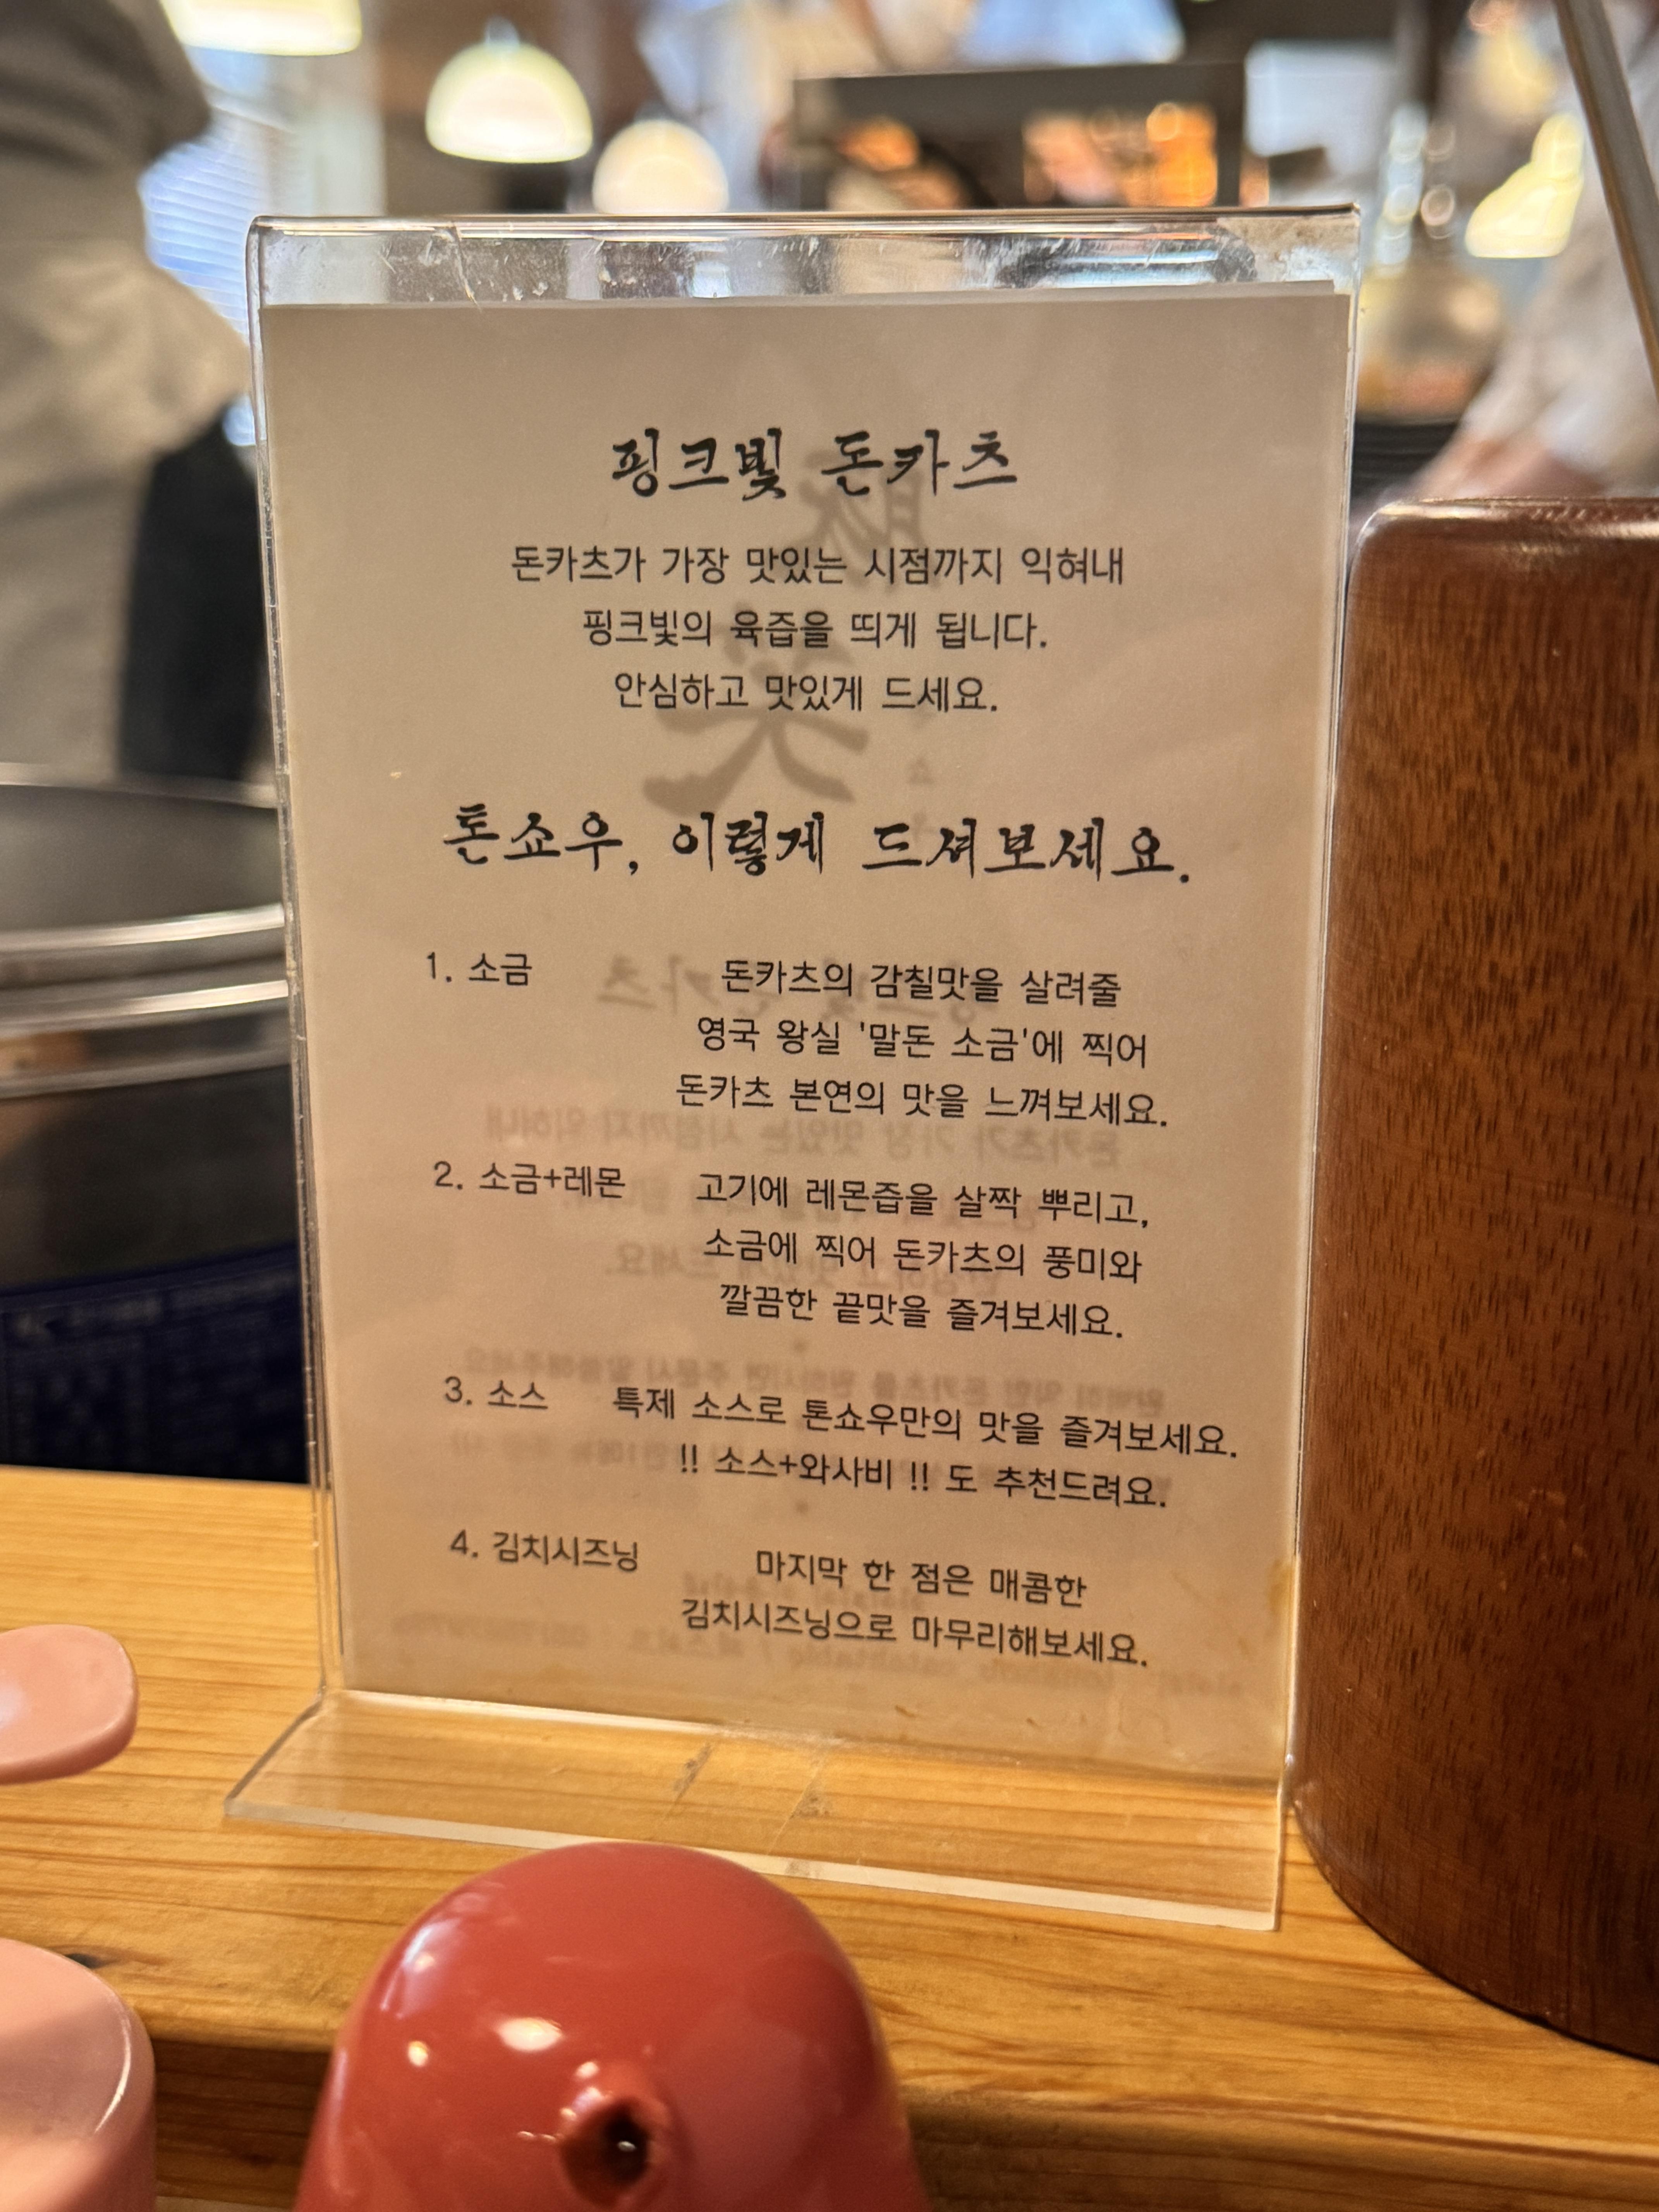 핑크빛 돈카츠
돈카츠가 가장 맛있는 시점까지 익혀내
핑크빛의 육즙을 띄게 됩니다.
안심하고 맛있게 드세요.
톤쇼우, 이렇게 드셔보세요.
1. 소금 돈카츠의 감칠맛을 살려줄
영국 왕실 '말돈 소금'에 찍어
돈카츠 본연의 맛을 느껴보세요.
2. 소금+레몬 고기에 레몬즙을 살짝 뿌리고,
소금에 찍어 돈카츠의 풍미와
깔끔한 끝맛을 즐겨보세요.
3. 소스 특제 소스로 톤쇼우만의 맛을 즐겨보세요.
!! 소스+와사비 !! 도 추천드려요.
4. 김치시즈닝 마지막 한 점은 매콤한
김치시즈닝으로 마무리해보세요.